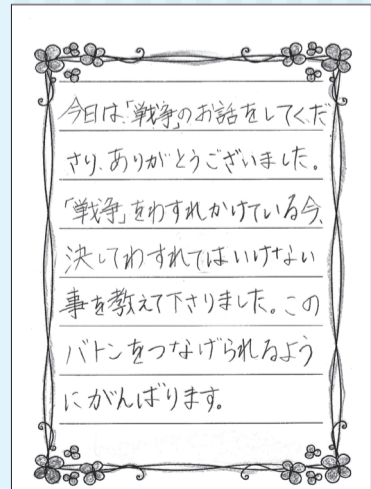 今日は、「戦争」のお話をしてくだ
さり、ありがとうございました。
「戦争」をわすれかけている今、
決してわすれてはいけない
事を教えて下さりました。この
バトンをつなげられるよう
にがんばります。